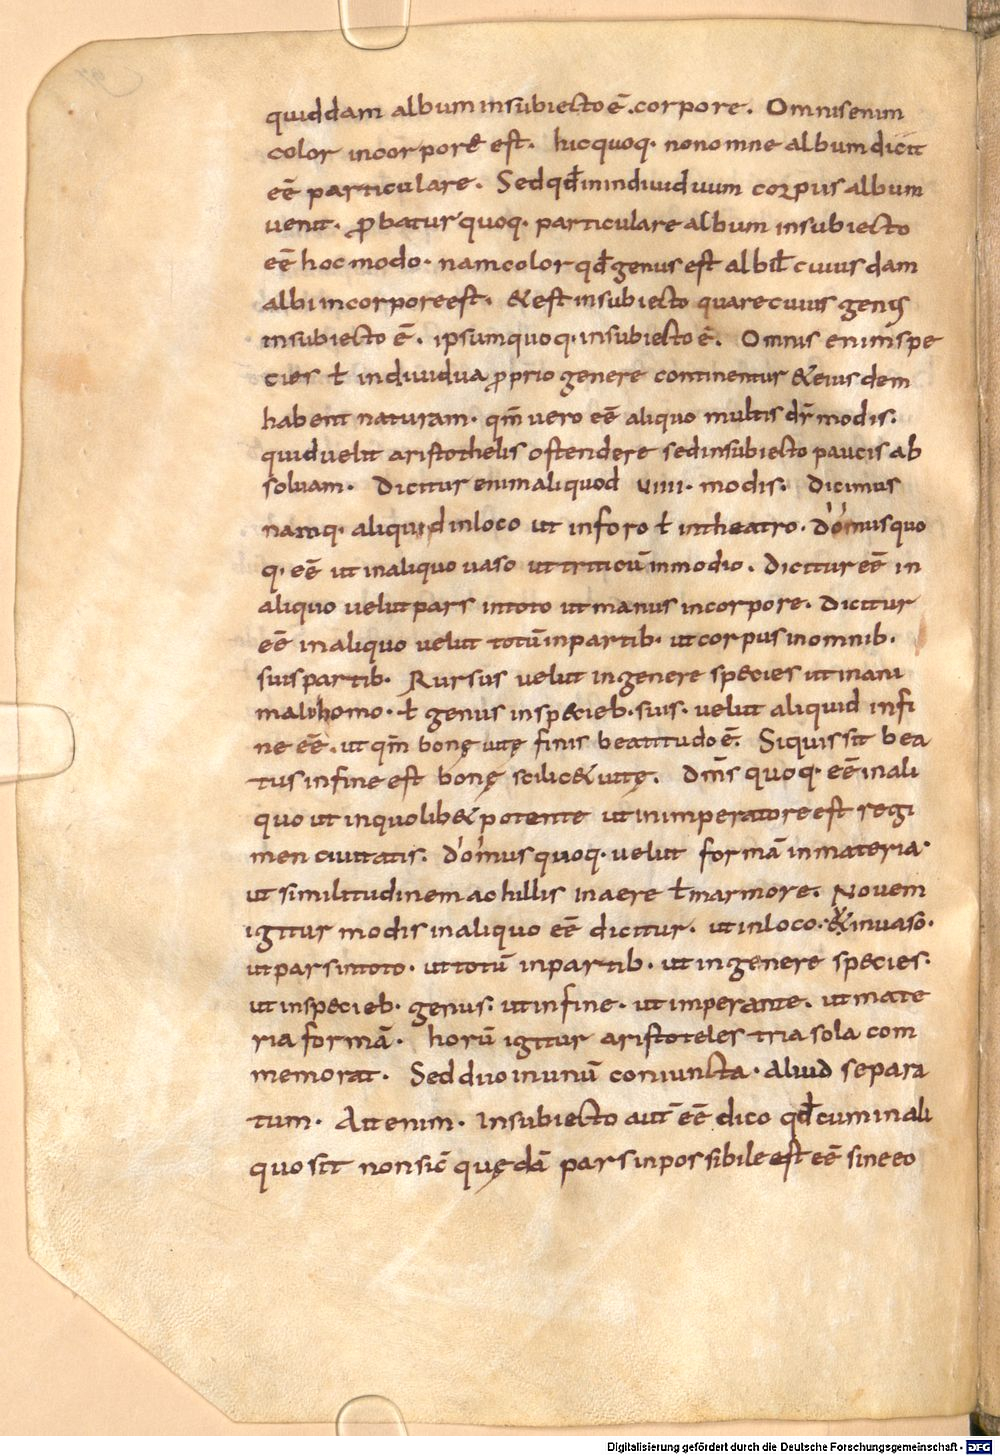 quiddam album insubiecto ē. corpore. Omnis enim
color incorpore est. hic quoq· non omne album dicit
eē particulare. Sed qđ in indiuiduum corpus album
uenit. ꝓbatur quoq· particulare album insubiecto
eē hoc modo· nam color qđ genus est albi ł cuiusdam
albi incorpore est. & est insubiecto quare cuius genus
insubiecto ē. ipsum quoq· insubiecto ē. Omnis enim spe
cies ł indiuidua ꝓprio genere continentur & eiusdem
habent naturam· qm̄ uero eē aliquo multis dr̄ modis.
quid uelit aristothelis ostendere sed insubiecto paucis ab
soluam· Dicitur enim aliquod uiiii· modis. Dicimus
namq· aliquid inloco ut inforo ł intheatro. Domus quo
q· eē ut inaliquo uaso ut triticū inmodio. Dicitur eē in
aliquo uelut pars intoto ut manus incorpore. Dicitur
eē inaliquo uelut totū inpartib· ut corpus inomnib·
suis partib· Rursus uelut ingenere species ut inani
mali homo· ł genus inspecieb· suis· uelut aliquid infi
ne eē. ut qm̄ bonę uitę finis beatitudo ē. Siquis sit bea
tus infine est bonę scilic& uitę. Dm̄s quoq· eē inali
quo ut inquolib& potente ut inimperatore est regi
men ciuitatis. Domus quoq· uelut formā inmateria·
ut similitudinem achillis inaere ł marmore. Nouem
igitur modis inaliquo eē dicitur. ut inloco· & inuaso·
ut pars intoto· ut totū inpartib· ut ingenere species·
ut inspecieb· genus. ut infine· ut imperante. ut mate
ria formā· horū igitur aristoteles tria sola com
memorat. Sed duo in unū coniuncta· aliud separa
tum· Ait enim· Insubiecto aut̄ eē dico qđ cum inali
quo sit non sic̄ quędā pars inpossibile est eē sine eo
Digitalisierung gefördert durch die Deutsche Forschungsgemeinschaft · DFG